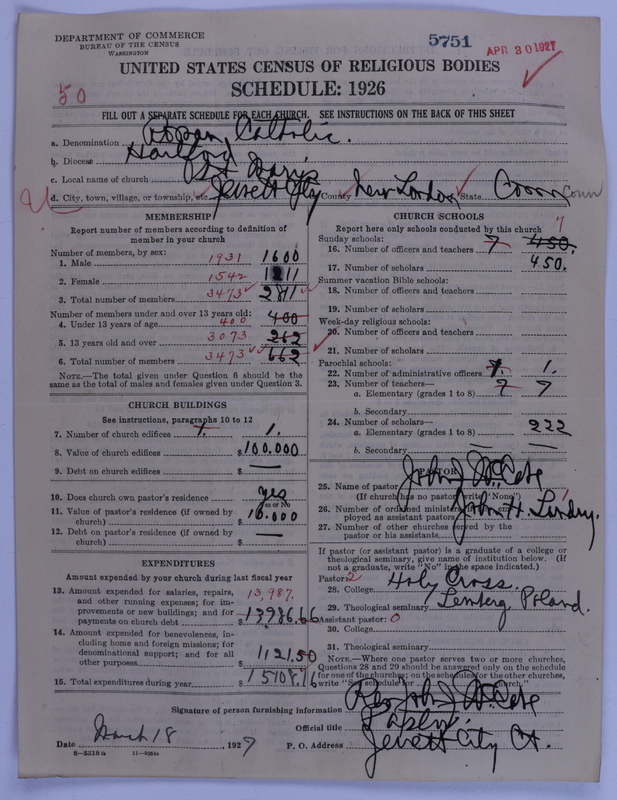 DEPARTMENT OF COMMERCE
BUREAU OF THE CENSUS
WASHINGTON
5751
APR 30 1927
UNITED STATES CENSUS OF RELIGIOUS BODIES
SCHEDULE: 1926
50
FILL OUT A SEPARATE SCHEDULE FOR EACH CHURCH. SEE INSTRUCTIONS ON THE BACK OF THIS SHEET
a. Denomination Roman Catholic.
b. Diocese Hartford
c. Local name of church St Mary's
d. City, town, village, or township, etc. Jewett City County New London State Conn Conn
MEMBERSHIP
Report number of members according to definition of
member in your church
Number of members, by sex:
1. Male 1931 1600
2. Female 1542 1211
3. Total number of members 3473 2811
Number of members under and over 13 years old:
4. Under 13 years of age 400 400
5. 13 years old and over 3073 262
6. Total number of members 3473 662
NOTE.—The total given under Question 6 should be the
same as the total of males and females given under Question 3.
CHURCH BUILDINGS
See instructions, paragraphs 10 to 12
7. Number of church edifices 1. 1.
8. Value of church edifices $100.000
9. Debt on church edifices $ —
10. Does church own pastor's residence yes
Yes or No
11. Value of pastor's residence (if owned by
church) $ 10.000
12. Debt on pastor's residence (if owned by
church) $ —
EXPENDITURES
Amount expended by your church during last fiscal year
13. Amount expended for salaries, repairs, 13,987.
and other running expenses; for im-
provements or new buildings; and for
payments on church debt $ 13986.66
14. Amount expended for benevolences, in-
cluding home and foreign missions; for
denominational support; and for all
other purposes 1121.50
15. Total expenditures during year $ 15108.16
CHURCH SCHOOLS
Report here only schools conducted by this church
Sunday schools: 7
16. Number of officers and teachers 7 450.
17. Number of scholars 450.
Summer vacation Bible schools:
18. Number of officers and teachers
19. Number of scholars
Week-day religious schools:
20. Number of officers and teachers
21. Number of scholars
Parochial schools:
22. Number of administrative officers 1. 1.
23. Number of teachers—
a. Elementary (grades 1 to 8) 7 7
b. Secondary
24. Number of scholars—
a. Elementary (grades 1 to 8) — 222
b. Secondary — —
PASTOR
25. Name of pastor John J McCabe
(If church has no pastor, write "None")
26. Number of ordained ministers em-
ployed as assistant pastors John H Landry. 1
27. Number of other churches served by the
pastor or his assistants
If pastor (or assistant pastor) is a graduate of a college or
theological seminary, give name of institution below. (If
not a graduate, write "No" in the space indicated.)
Pastor: 2
28. College Holy Cross.
29. Theological seminary Lemberg Poland.
Assistant pastor: 0
30. College
31. Theological seminary
NOTE.—Where one pastor serves two or more churches,
Questions 28 and 29 should be answered only on the schedule
for one of the churches; on the schedules for the other churches,
write "See schedule for church."
Signature of person furnishing information Rev John J McCabe
Official title Pastor.
Date March 18, 1927 P. O. Address Jewett City Ct.
8-5318a 11-9264a